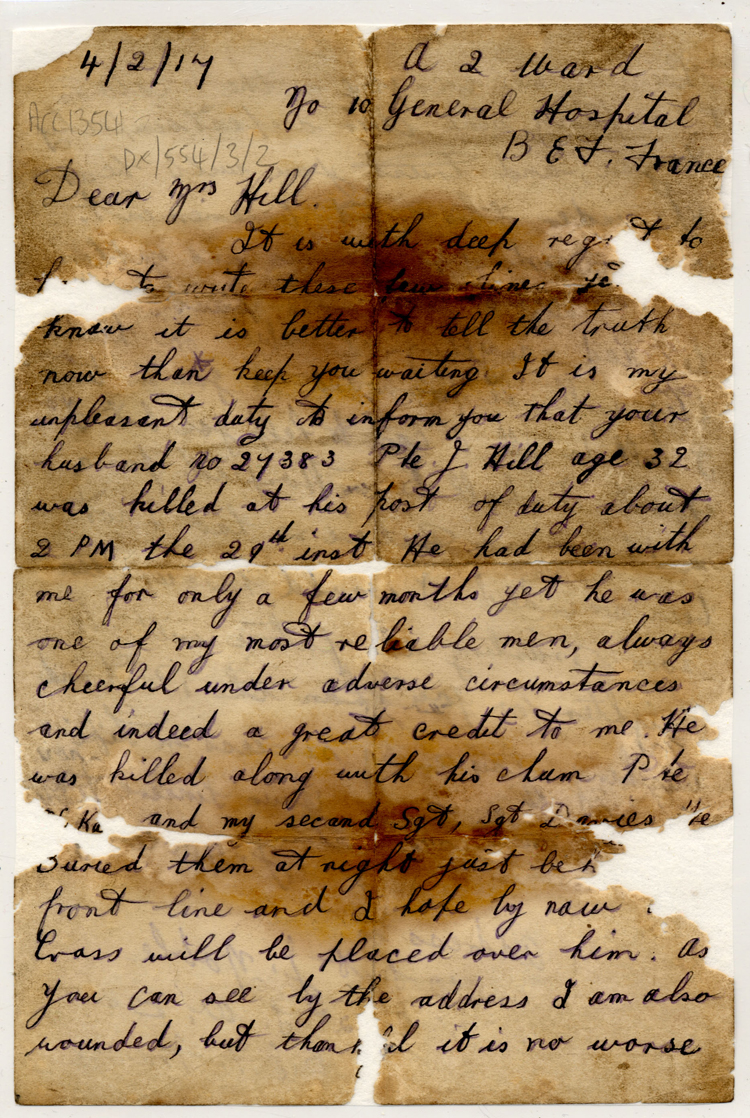 4/2/17
A 2 Ward
No 10 General Hospital
B E F. France
Acc1354
DX/554/3/2
Dear Mrs Hill.
It is with deep reg t to
to write these few lines
know it is better to tell the truth
now than keep you waiting. It is my
unpleasant duty to inform you that your
husband No 27383 Pte J Hill age 32
was killed at his post of duty about
2 PM the 29th inst He had been with
me for only a few months yet he was
one of my most reliable men, always
cheerful under adverse circumstances
and indeed a great credit to me. He
was killed along with his chum Pte
and my second Sgt, Sgt Davies We
buried them at night just
front line and I hope by now
Cross will be placed over him. As
you can see by the address I am also
wounded, but it is no worse